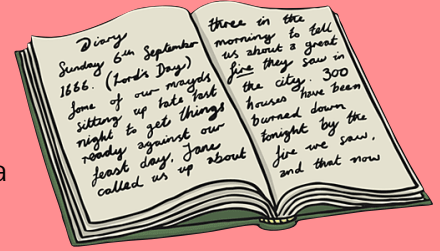 Diary
Sunday 6th September
1666. (Lord's Day)
Some of our mayds
sitting up late last
night to get things
ready against our
feast day, Jane
called us up about
three in the
morning to tell
us about a great
fire they saw in
the city. 300
houses have been
burned down
tonight by the
fire we saw,
and that now
a